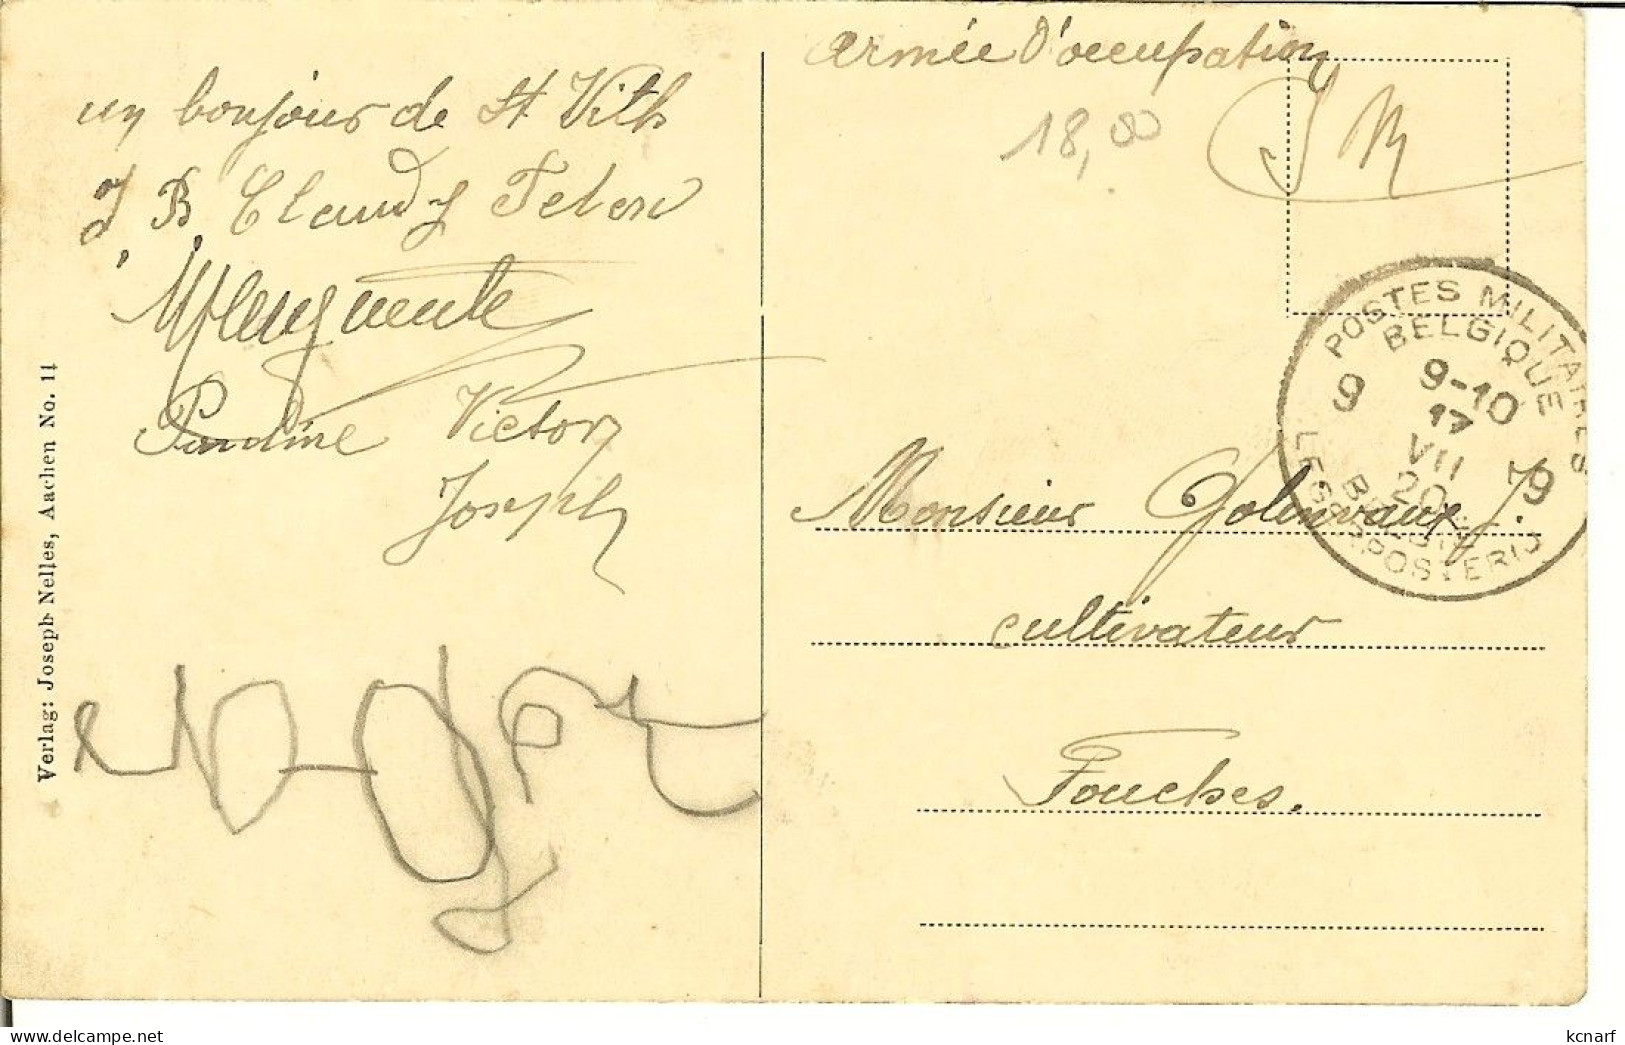 un bonjour de St Vith
J. B. Claudy Feler
Marguerite
Pauline Victor
Joseph
Verlag: Joseph Nelles, Aachen No. 11
Armée d'occupation
18,00
S M
POSTES MILITAIRES
BELGIQUE
9 9-10 9
17
VII
20
BELGIË
LEGERPOSTERIJ
Monsieur Golinvaux J.
cultivateur
Fouches.
kcnarf